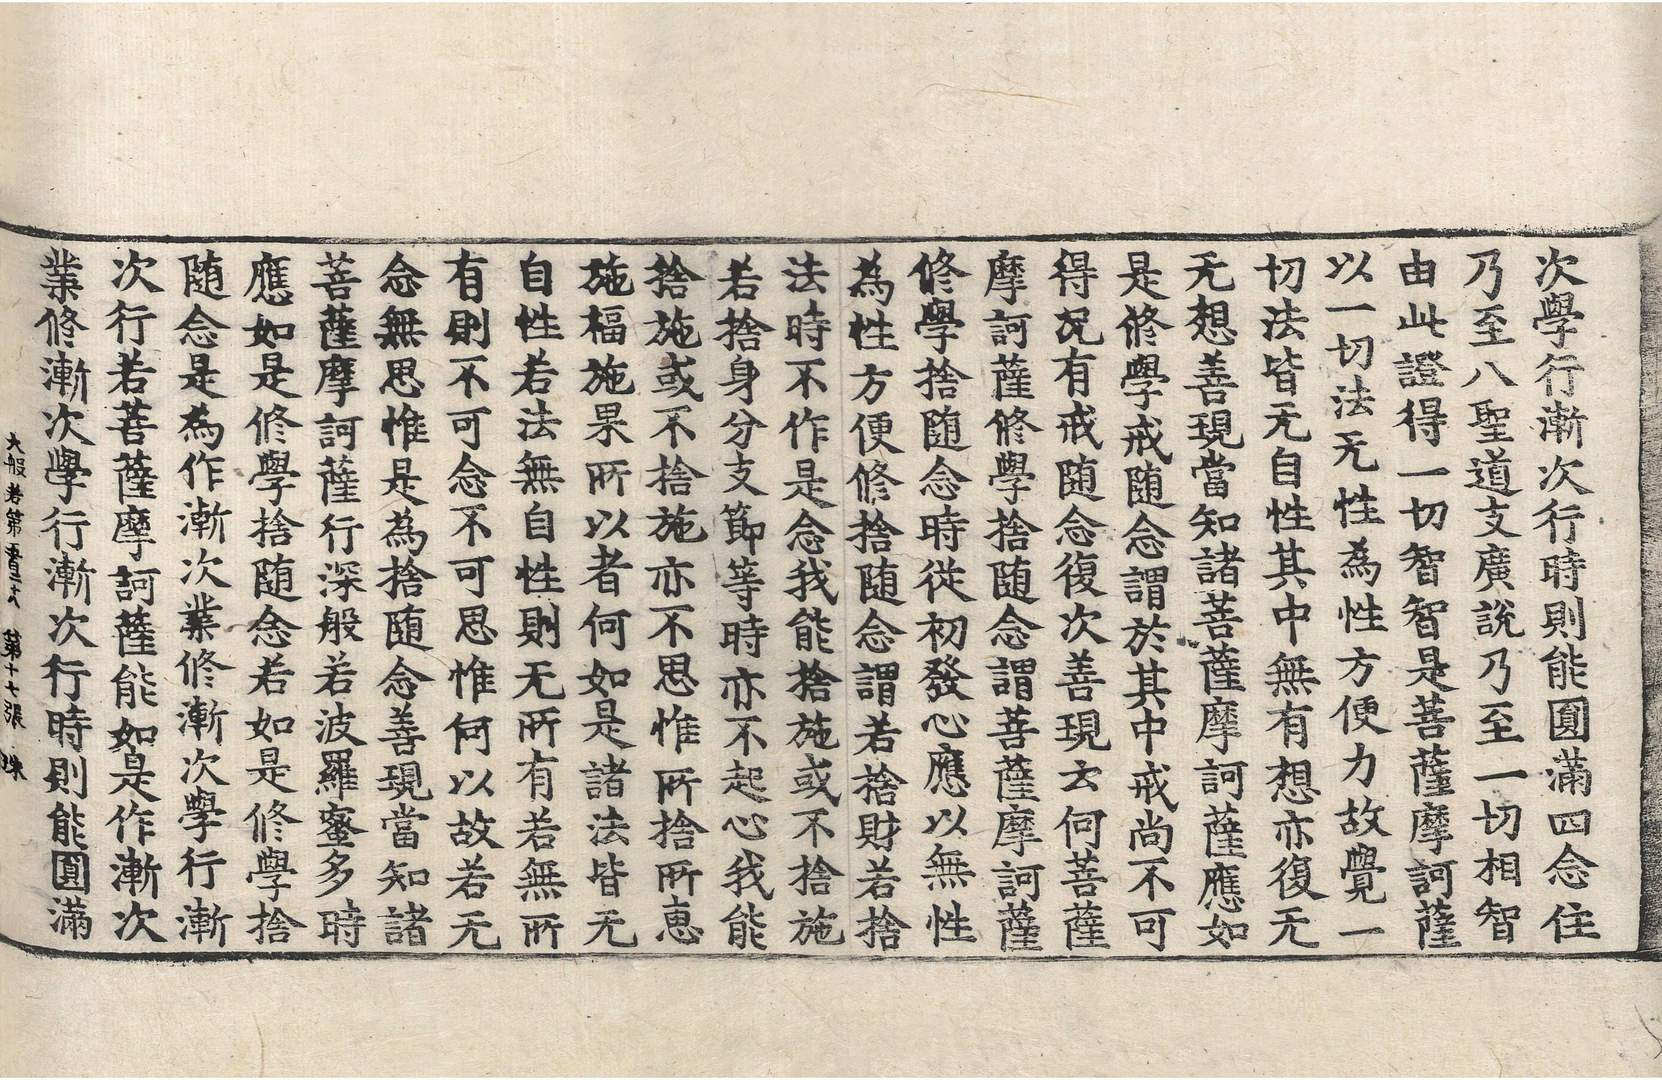 次學行漸次行時則能圓滿四念住
乃至八聖道支廣說乃至一切相智
由此證得一切智智是菩薩摩訶薩
以一切法无性為性方便力故覺一
切法皆无自性其中無有想亦復无
无想善現當知諸菩薩摩訶薩應如
是修學戒随念謂於其中戒尚不可
得況有戒随念復次善現云何菩薩
摩訶薩修學捨随念謂菩薩摩訶薩
修學捨随念時從初發心應以無性
為性方便修捨随念謂若捨財若捨
法時不作是念我能捨施或不捨施
若捨身分支節等時亦不起心我能
捨施或不捨施亦不思惟所捨所惠
施福施果所以者何如是諸法皆无
自性若法無自性則无所有若無所
有則不可念不可思惟何以故若无
念無思惟是為捨随念善現當知諸
菩薩摩訶薩行深般若波羅蜜多時
應如是修學捨随念若如是修學捨
随念是為作漸次業修漸次學行漸
次行若菩薩摩訶薩能如是作漸次
業修漸次學行漸次行時則能圓滿
大般若第 第十七張 珠